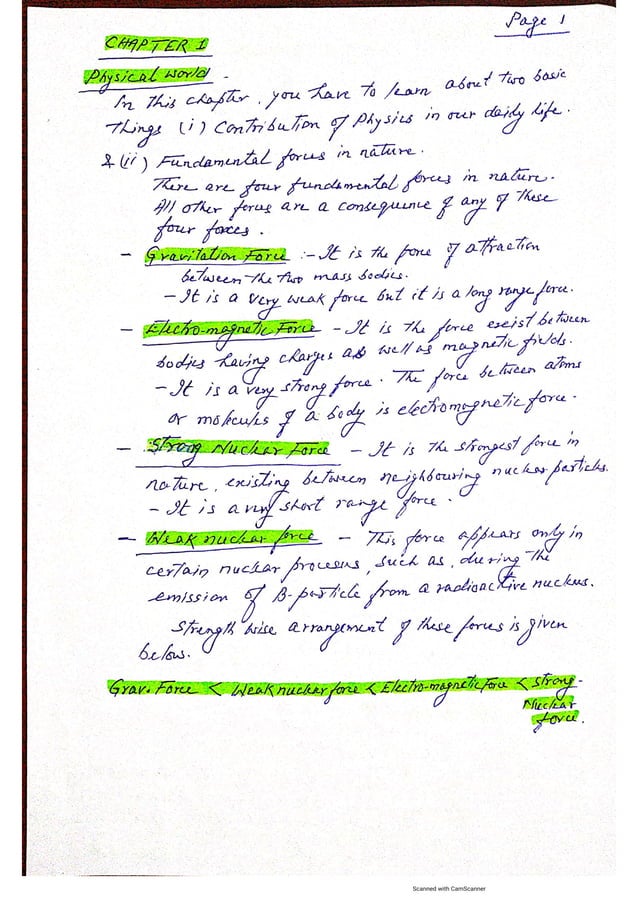 Page 1
CHAPTER 1
Physical world -
In this chapter, you have to learn about two basic
things (i) Contribution of Physics in our daily life.
& (ii) Fundamental forces in nature.
There are four fundamental forces in nature.
All other forces are a consequence of any of these
four forces.
- Gravitation Force :- It is the force of attraction
between the two mass bodies.
- It is a very weak force but it is a long range force.
- Electro-magnetic Force - It is the force exist between
bodies having charges as well as magnetic fields.
- It is a very strong force. The force between atoms
or molecules of a body is electromagnetic force.
- Strong Nuclear Force - It is the strongest force in
nature, existing between neighbouring nuclear particles.
- It is a very short range force.
- Weak nuclear force - This force appears only in
certain nuclear process, such as, during the
emission of β-particle from a radioactive nucleus.
Strength wise arrangement of these forces is given
below.
Grav. Force < Weak nuclear force < Electro-magnetic Force < Strong-
Nuclear
force.
Scanned with CamScanner